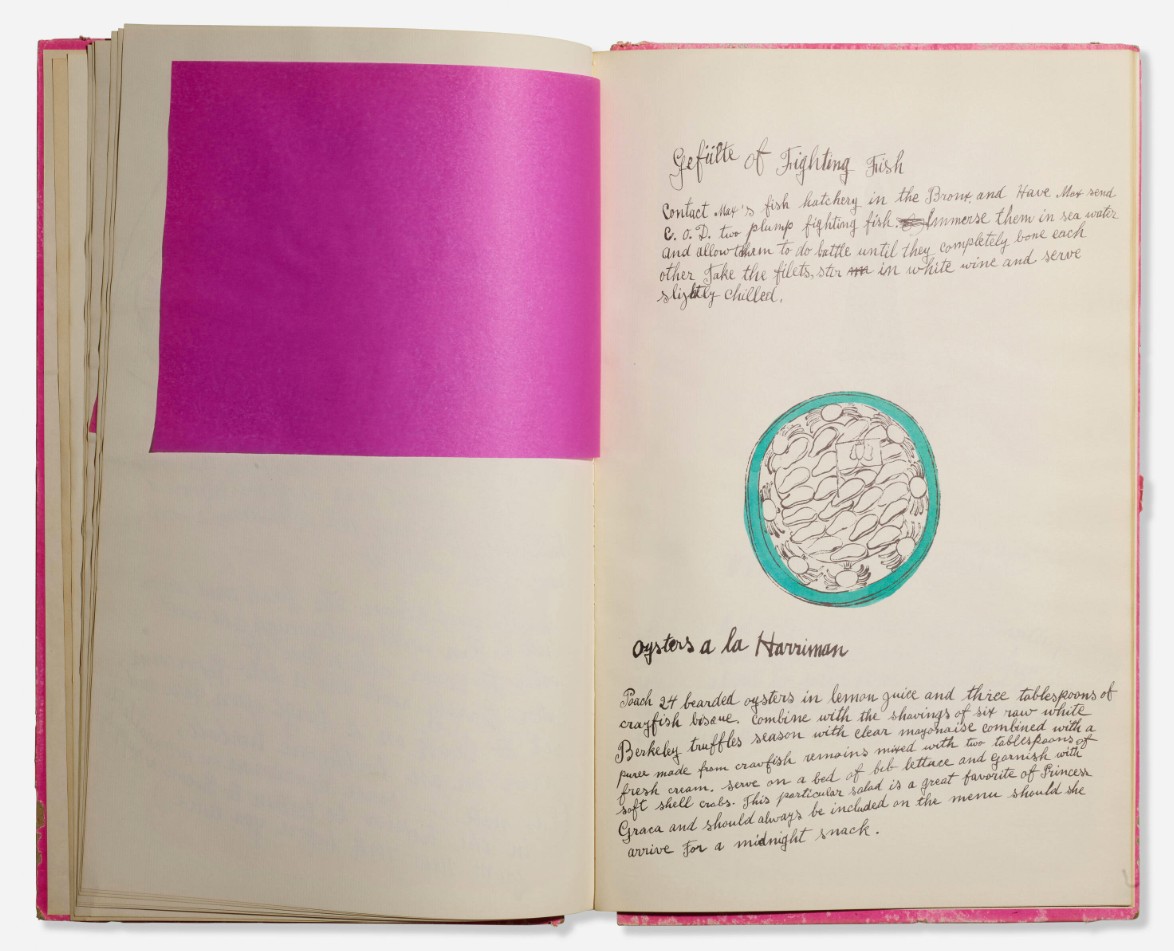 Gefülte of Fighting Fish
Contact Max's fish hatchery in the Bronx, and Have Max send
C. O. D. two plump fighting fish. Immerse them in sea water
and allow them to do battle until they completely bone each
other Take the filets, ster in white wine and serve
slightly chilled.
oysters a la Harriman
Poach 24 bearded oysters in lemon juice and three tablespoons of
crayfish bisque. Combine with the shavings of six raw white
Berkeley truffles season with clear mayonaise combined with a
puree made from crawfish remains mixed with two tablespoons of
fresh cream. serve on a bed of bib lettuce and garnish with
soft shell crabs. This particular salad is a great favorite of Princess
Graca and should always be included on the menu should she
arrive for a midnight snack.